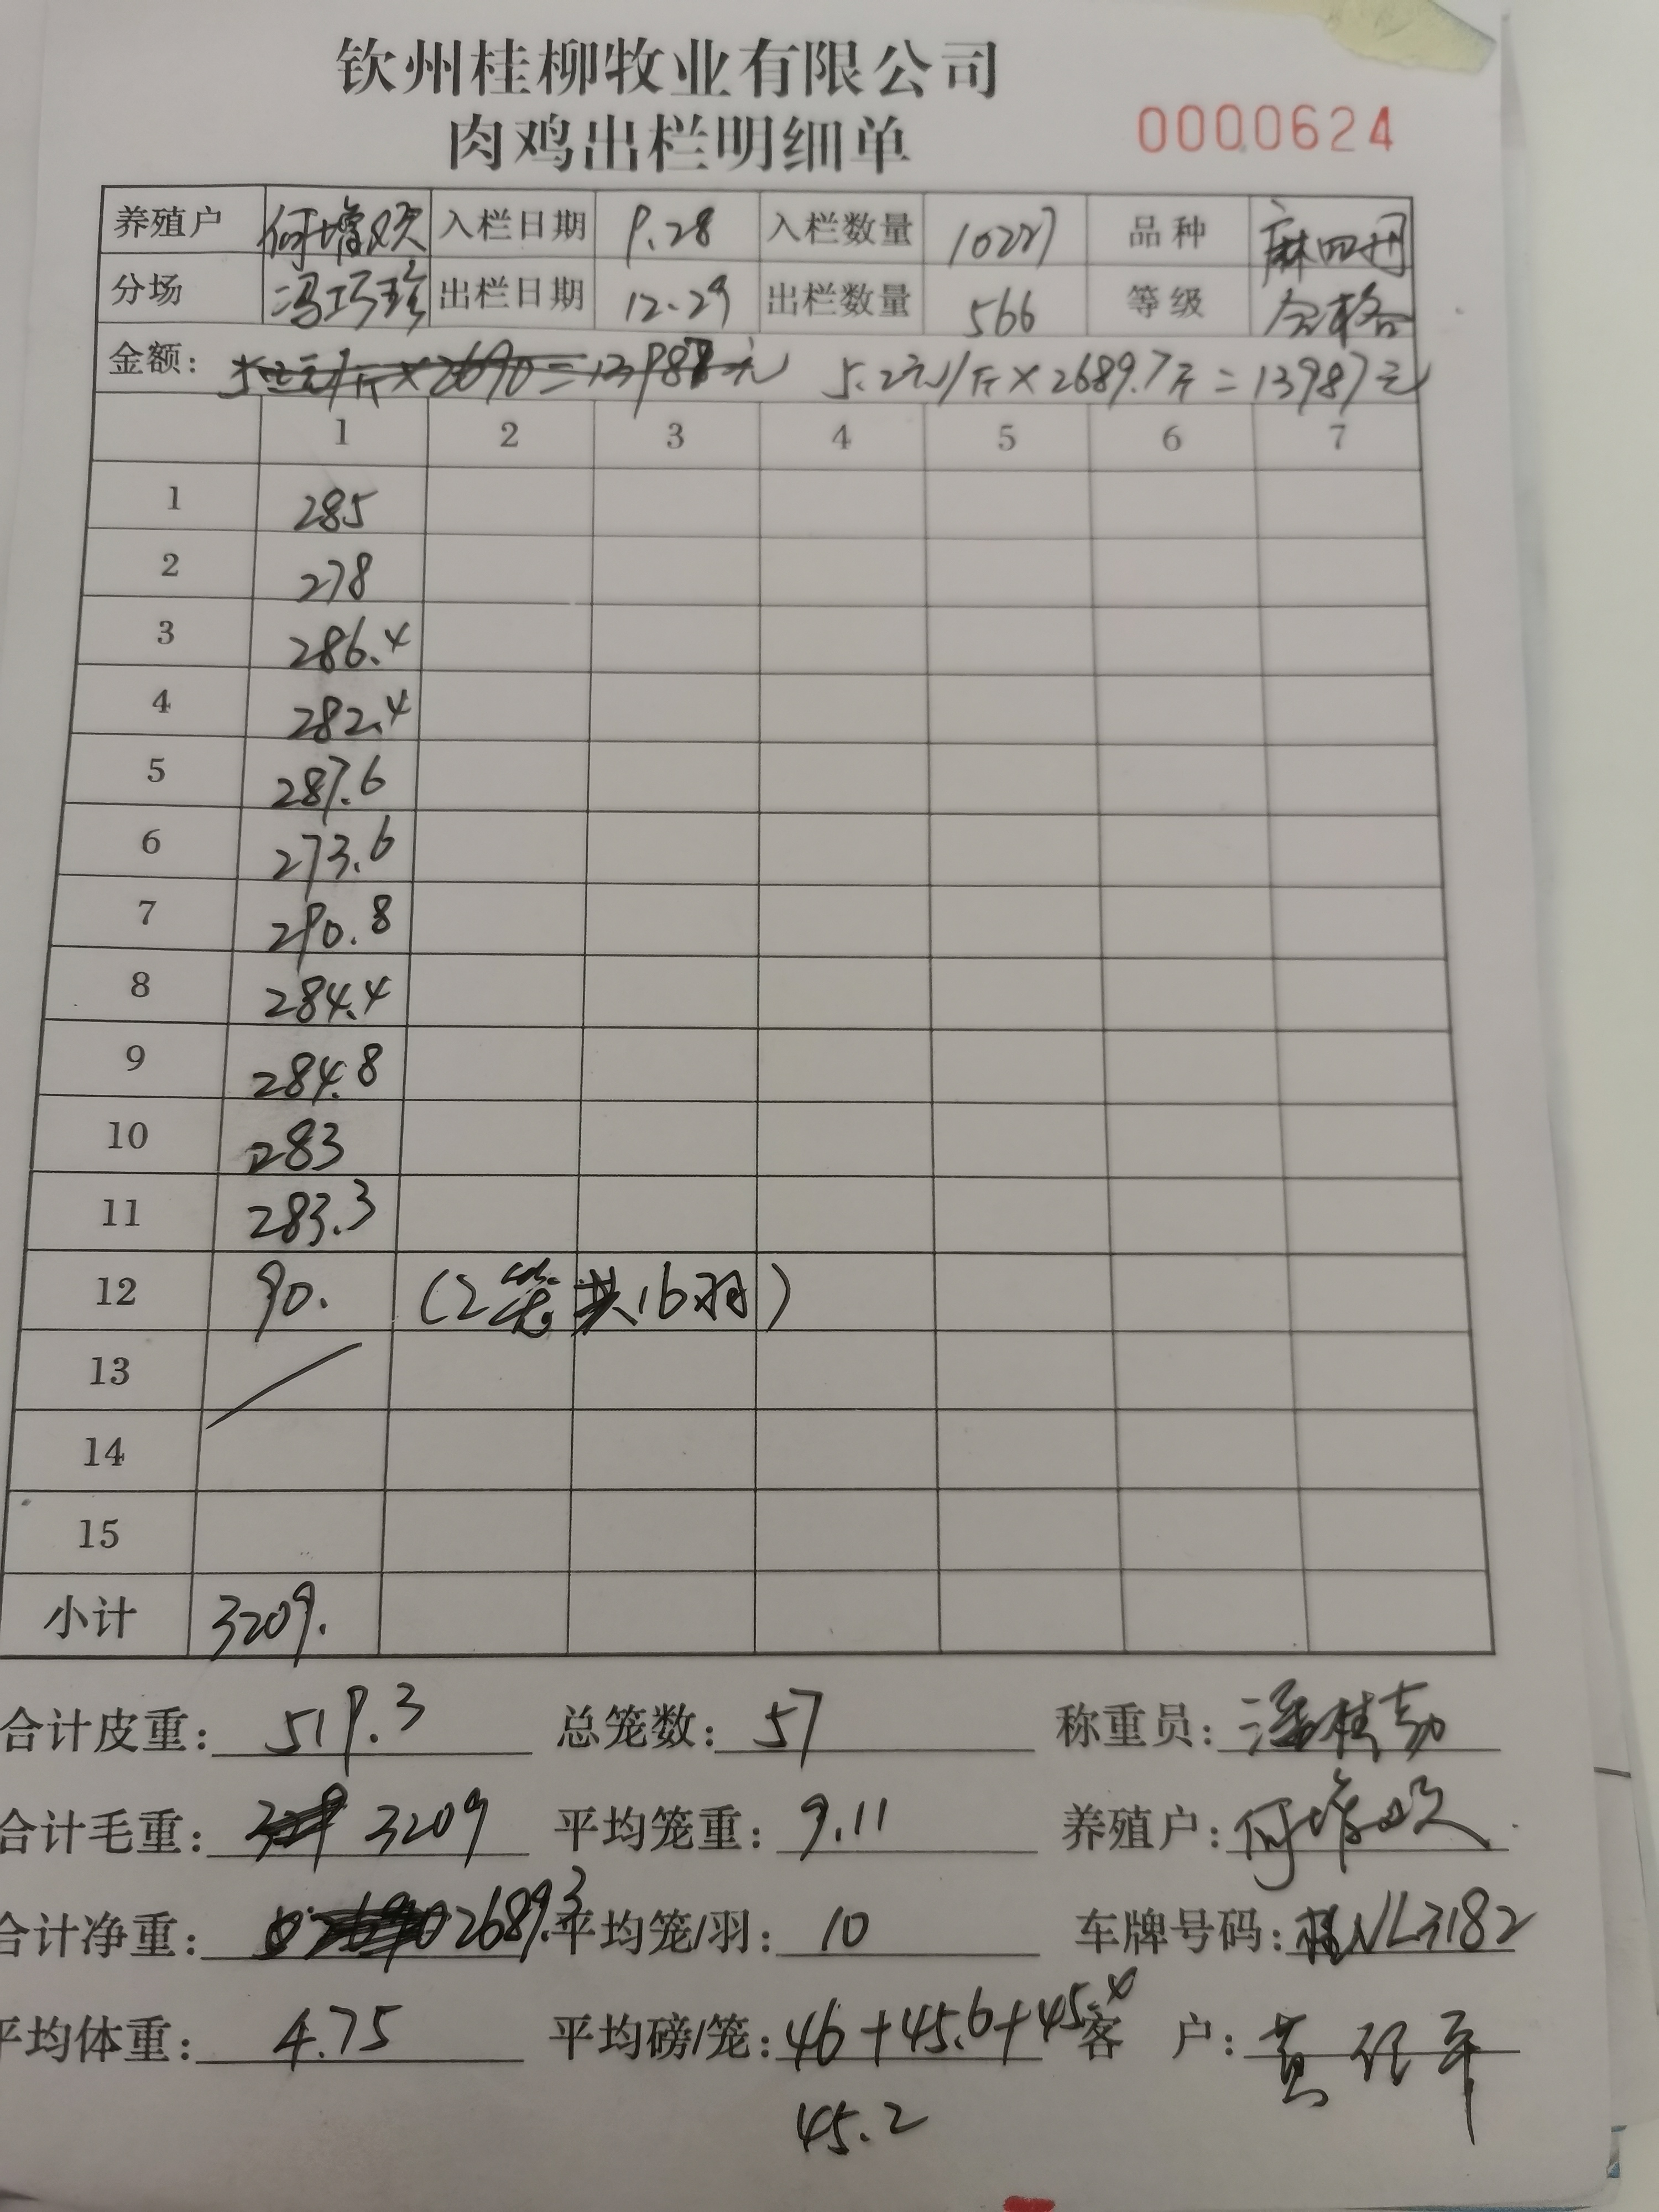 钦州桂柳牧业有限公司
肉鸡出栏明细单 0000624
养殖户 何增欢 入栏日期 9.28 入栏数量 10227 品种 麻四
分场 冯巧珍 出栏日期 12.29 出栏数量 566 等级 合格
金额: 5.2元/斤×2690=13987元 5.2元/斤×2689.7斤=13987元
1 2 3 4 5 6 7
1 285
2 278
3 286.4
4 282.4
5 287.6
6 273.6
7 290.8
8 284.4
9 284.8
10 283
11 283.3
12 90. (2笼共16羽)
13
14
15
小计 3209.
合计皮重: 519.3 总笼数: 57 称重员:
合计毛重: 3209 平均笼重: 9.11 养殖户: 何增欢
合计净重: 2689.3 平均笼/羽: 10 车牌号码: 桂NL3182
平均体重: 4.75 平均磅/笼: 46+45.6+45.4 客 户:
45.2